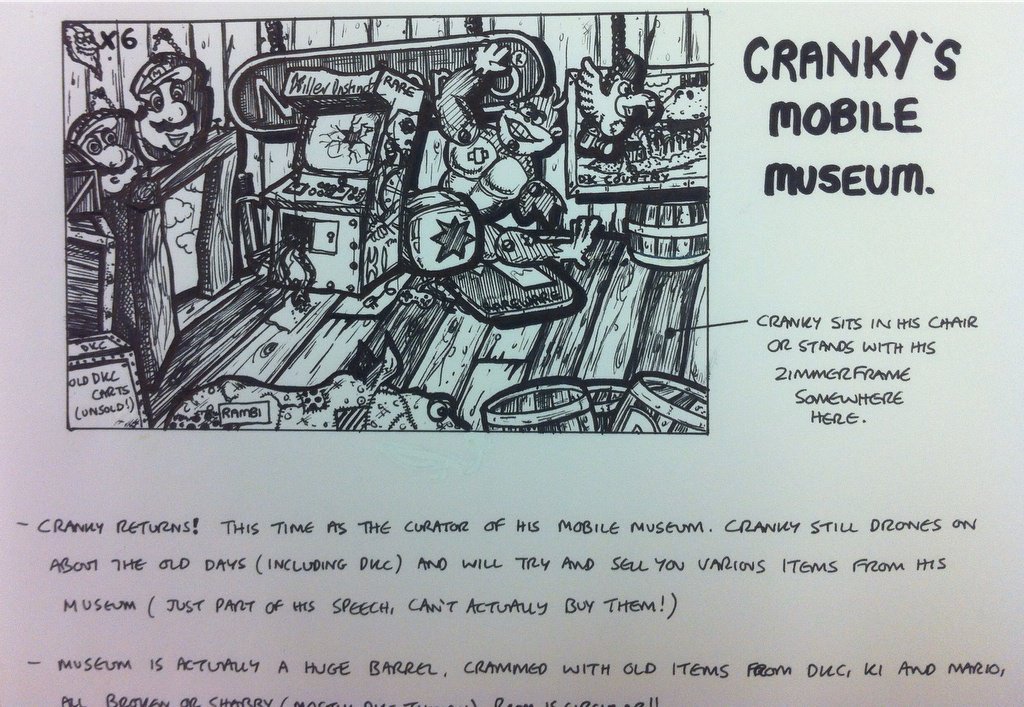 x6
CRANKY'S
MOBILE
MUSEUM.
Killer Instinct
RARE
DK COUNTRY
DKC
OLD DKC
CARTS
(UNSOLD!)
RAMBI
CRANKY SITS IN HIS CHAIR
OR STANDS WITH HIS
ZIMMERFRAME
SOMEWHERE
HERE.
- CRANKY RETURNS! THIS TIME AS THE CURATOR OF HIS MOBILE MUSEUM. CRANKY STILL DRONES ON
ABOUT THE OLD DAYS (INCLUDING DKC) AND WILL TRY AND SELL YOU VARIOUS ITEMS FROM HIS
MUSEUM (JUST PART OF HIS SPEECH, CAN'T ACTUALLY BUY THEM!)
- MUSEUM IS ACTUALLY A HUGE BARREL, CRAMMED WITH OLD ITEMS FROM DKC, KI AND MARIO,
ALL BROKEN OR SHABBY (MOSTLY DKC THOUGH). ROOM IS CIRCULAR!!